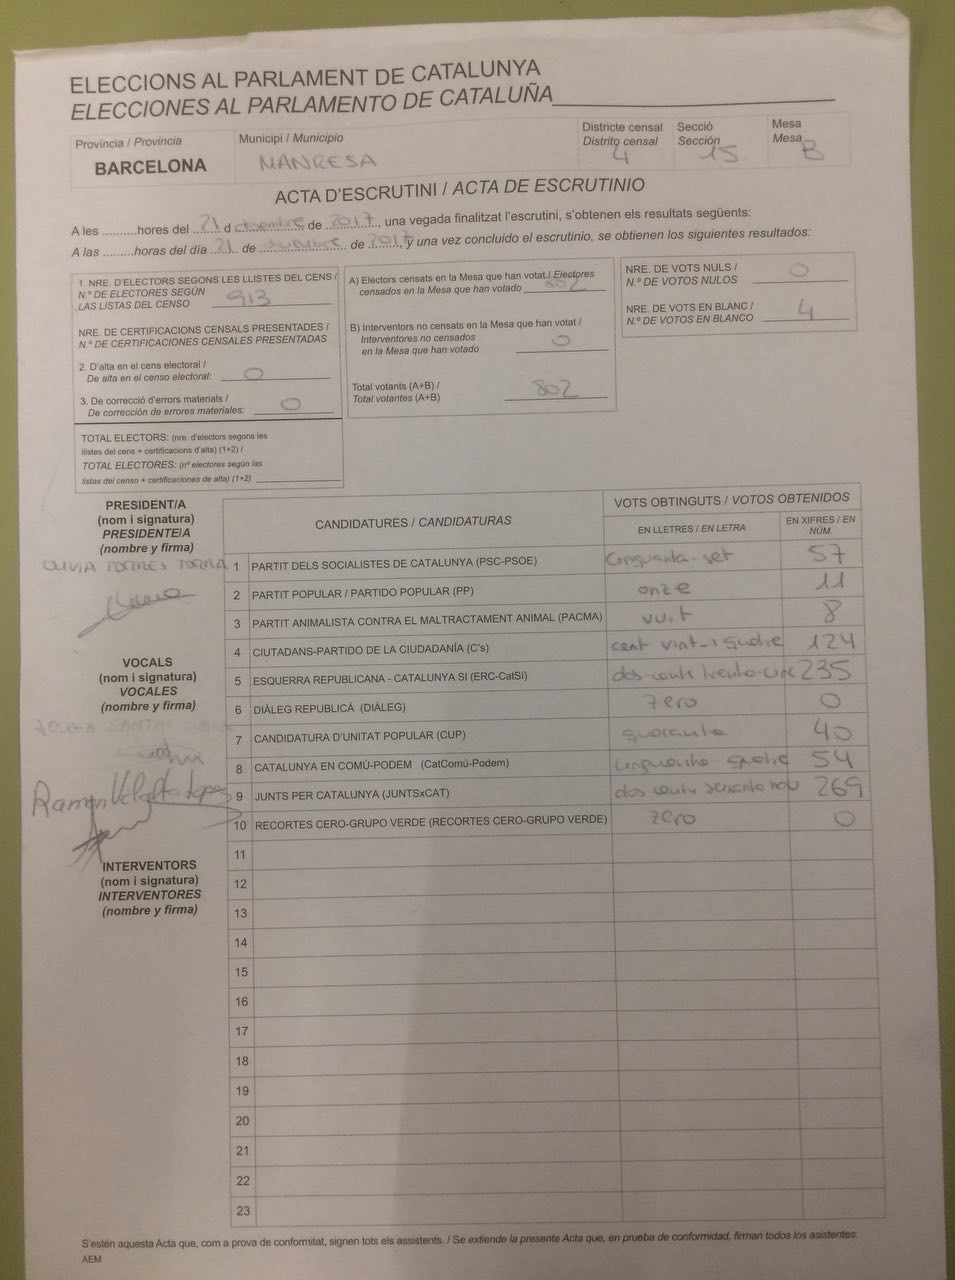 ELECCIONS AL PARLAMENT DE CATALUNYA
ELECCIONES AL PARLAMENTO DE CATALUÑA
Província / Provincia
BARCELONA
Municipi / Municipio
MANRESA
Districte censal
Distrito censal
4
Secció
Sección
15
Mesa
Mesa
B
ACTA D'ESCRUTINI / ACTA DE ESCRUTINIO
A les ......... hores del 21 d desembre de 2017, una vegada finalitzat l'escrutini, s'obtenen els resultats següents:
A las ......... horas del día 21 de de 2017, y una vez concluido el escrutinio, se obtienen los siguientes resultados:
1. NRE. D'ELECTORS SEGONS LES LLISTES DEL CENS /
N.º DE ELECTORES SEGÚN
LAS LISTAS DEL CENSO 913
NRE. DE CERTIFICACIONS CENSALS PRESENTADES /
N.º DE CERTIFICACIONES CENSALES PRESENTADAS
2. D'alta en el cens electoral /
De alta en el censo electoral: 0
3. De correcció d'errors materials /
De corrección de errores materiales: 0
TOTAL ELECTORS: (nre. d'electors segons les
llistes del cens + certificacions d'alta) (1+2) /
TOTAL ELECTORES: (nº electores según las
listas del censo + certificaciones de alta) (1+2)
A) Electors censats en la Mesa que han votat / Electores
censados en la Mesa que han votado 802
B) Interventors no censats en la Mesa que han votat /
Interventores no censados
en la Mesa que han votado 0
Total votants (A+B) /
Total votantes (A+B) 802
NRE. DE VOTS NULS /
N.º DE VOTOS NULOS 0
NRE. DE VOTS EN BLANC /
N.º DE VOTOS EN BLANCO 4
PRESIDENT/A
(nom i signatura)
PRESIDENTE/A
(nombre y firma)
OLIVIA TORRES TORRA
VOCALS
(nom i signatura)
VOCALES
(nombre y firma)
Ramon
INTERVENTORS
(nom i signatura)
INTERVENTORES
(nombre y firma)
CANDIDATURES / CANDIDATURAS
VOTS OBTINGUTS / VOTOS OBTENIDOS
EN LLETRES / EN LETRA
EN XIFRES / EN NÚM.
1 PARTIT DELS SOCIALISTES DE CATALUNYA (PSC-PSOE) cinquanta-set 57
2 PARTIT POPULAR / PARTIDO POPULAR (PP) onze 11
3 PARTIT ANIMALISTA CONTRA EL MALTRACTAMENT ANIMAL (PACMA) vuit 8
4 CIUTADANS-PARTIDO DE LA CIUDADANÍA (C's) cent vint-i quatre 124
5 ESQUERRA REPUBLICANA - CATALUNYA SI (ERC-CatSí) dos-cents trenta-cinc 235
6 DIÀLEG REPUBLICÀ (DIÀLEG) zero 0
7 CANDIDATURA D'UNITAT POPULAR (CUP) quaranta 40
8 CATALUNYA EN COMÚ-PODEM (CatComú-Podem) cinquanta quatre 54
9 JUNTS PER CATALUNYA (JUNTSxCAT) dos cents seixanta nou 269
10 RECORTES CERO-GRUPO VERDE (RECORTES CERO-GRUPO VERDE) zero 0
11
12
13
14
15
16
17
18
19
20
21
22
23
S'estén aquesta Acta que, com a prova de conformitat, signen tots els assistents. / Se extiende la presente Acta que, en prueba de conformidad, firman todos los asistentes.
AEM